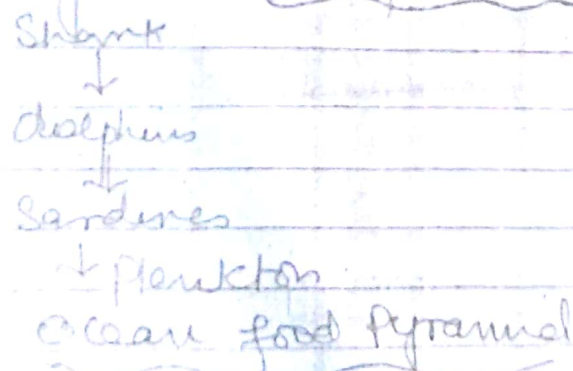 Shark
↓
dolphins
↓
Sardines
↓ plankton
Ocean food Pyramid